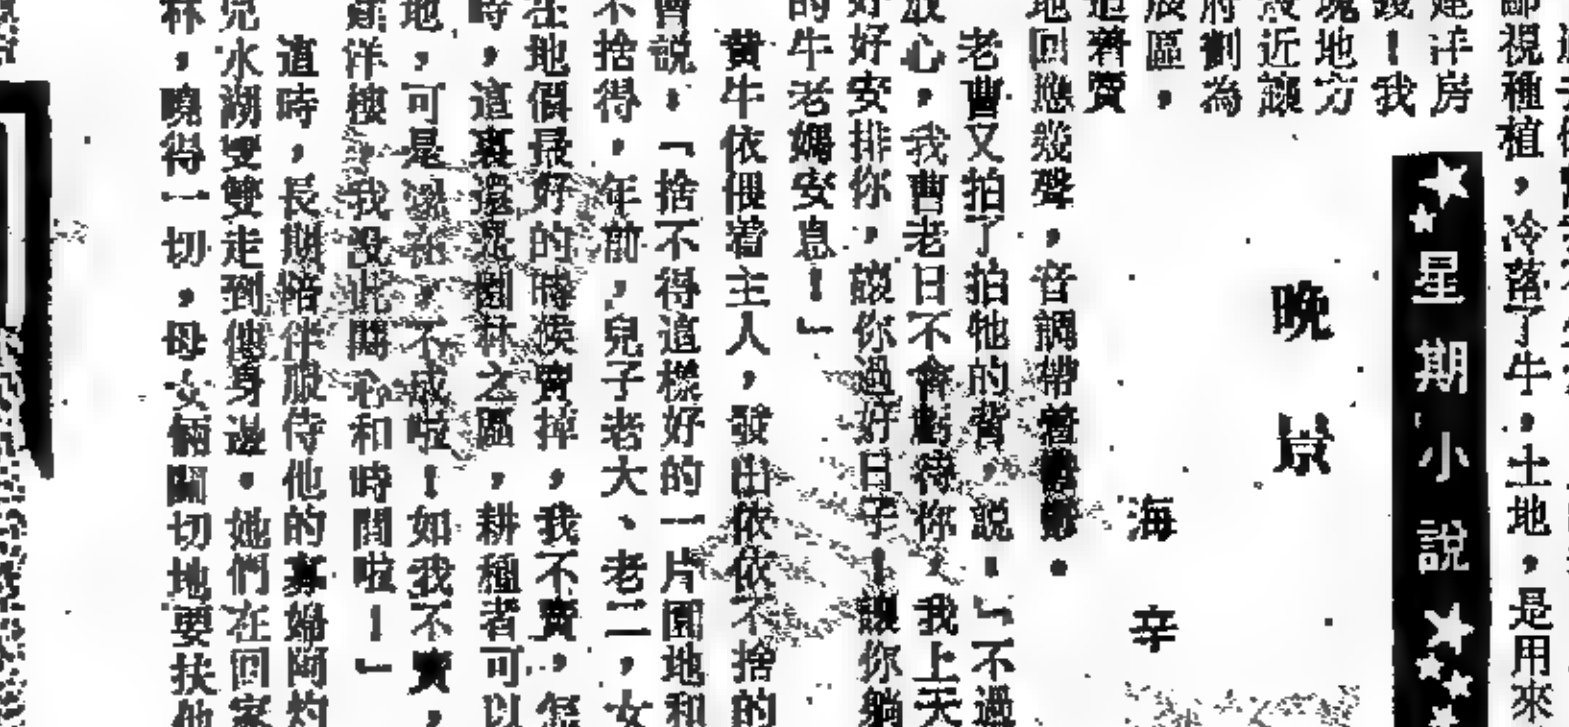 鄙視種植，冷落了牛，土地，是用來
★星期小說★
晚景
海辛
建洋房
錢！我
塊地方
幾近讓
府劃為
展區，
追着賣
地回應幾聲，音調帶着
老曹又拍了拍牠的背，說：「不過
放心，我曹老日不會虧待你，我上天
好好安排你，讓你過好日子！讓你躺
的牛老媽安息！」
黄牛依偎着主人，發出依依不捨的
曹說，「捨不得這樣好的一片園地和
不捨得，年前，兒子老大、老二，女
在地價最好的時候賣掉，我不賣，怎
時，這裏還是園林之區，耕種者可以
地，可是現在，不成啦！如我不賣，
建洋樓，我没此閒心和時間啦！」
這時，長期陪伴服侍他的寡婦阿灼
兒水湖雙雙走到他身邊。她們在回家
林，曉得一切，母女倆關切地要扶他